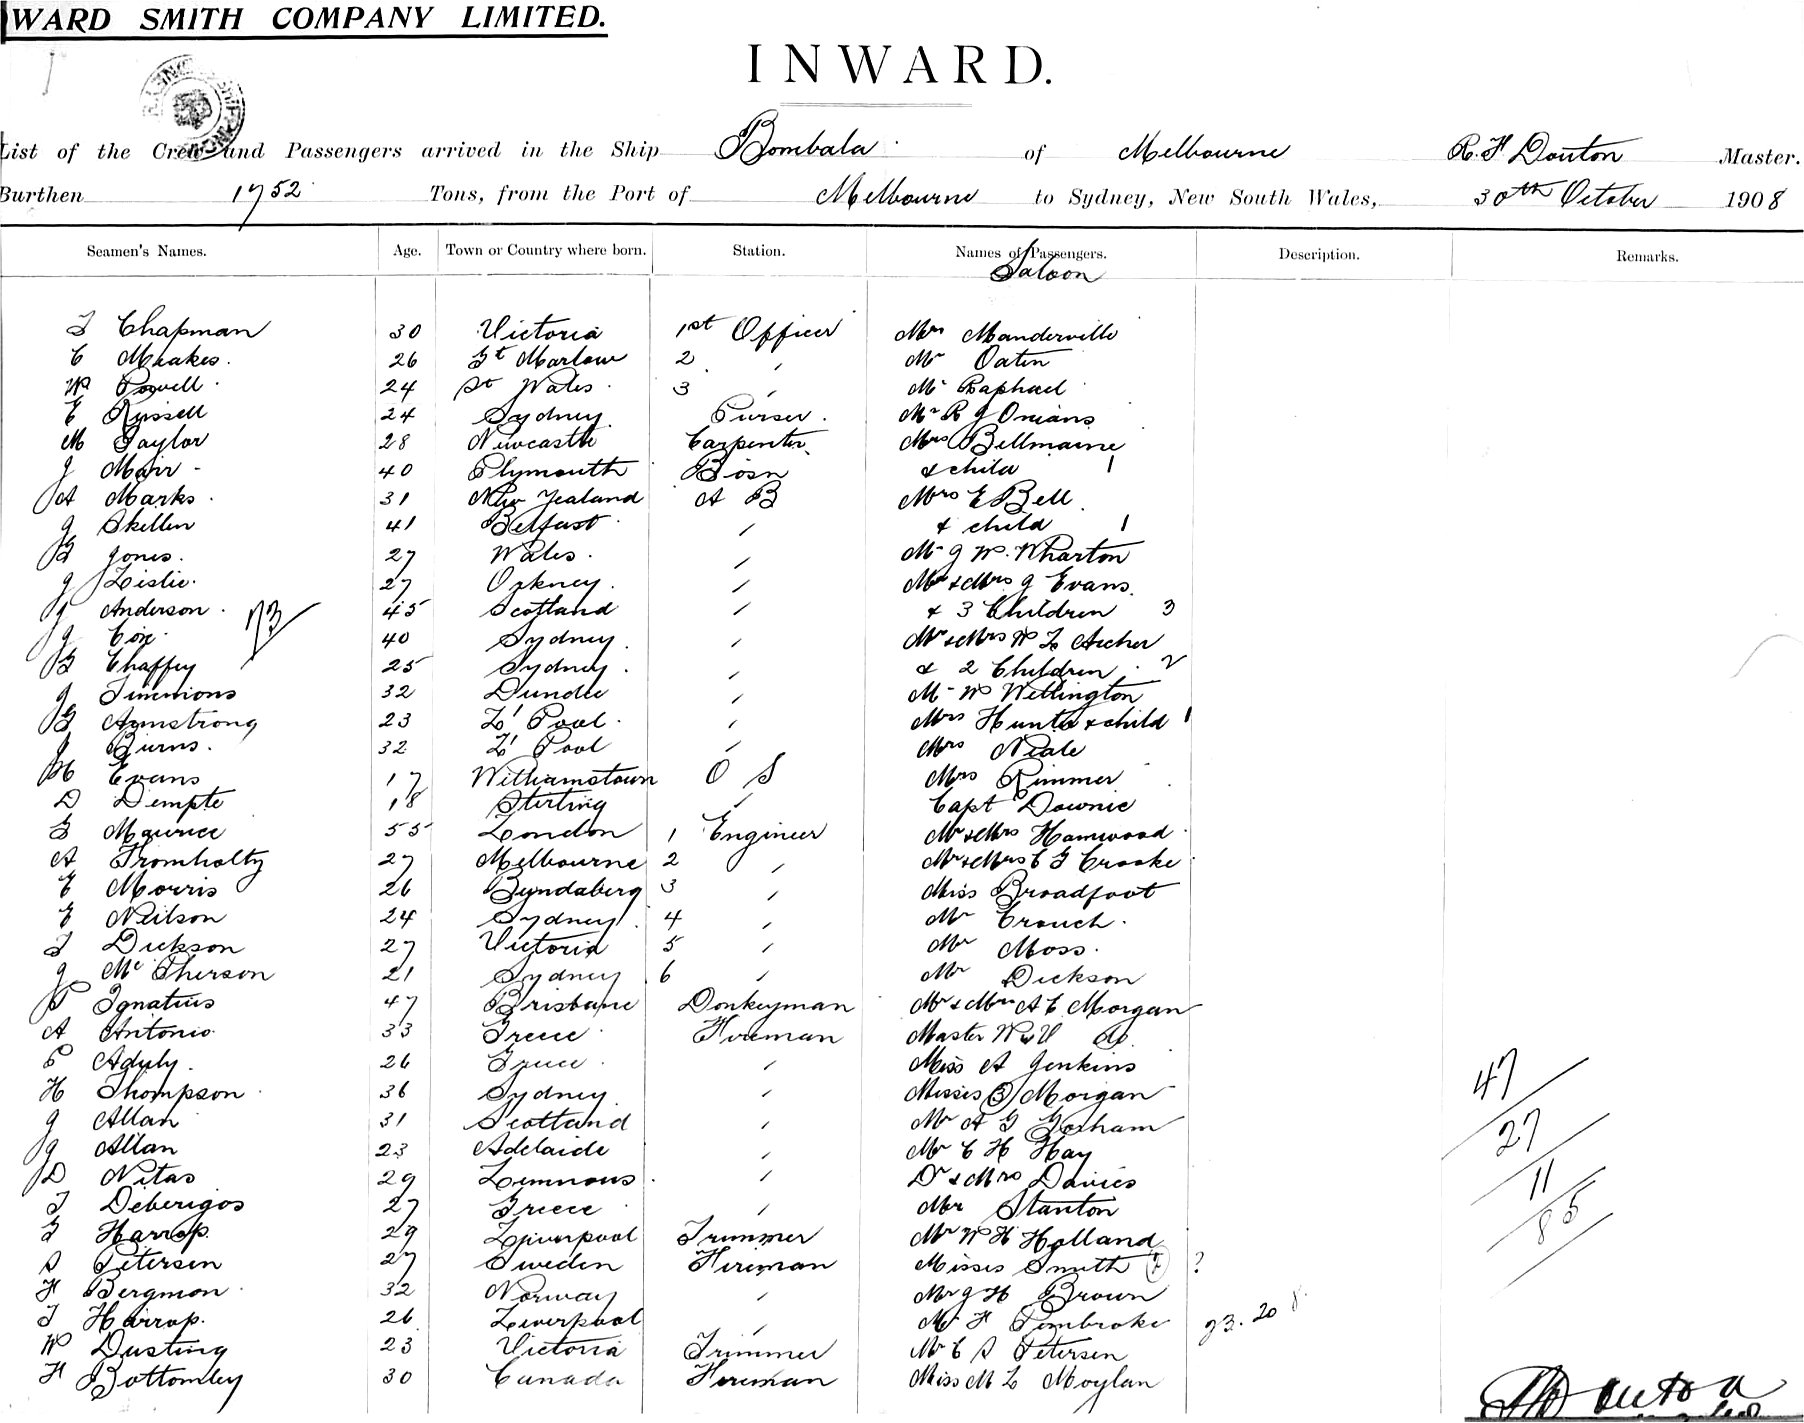 WARD SMITH COMPANY LIMITED.
INWARD.
List of the Crew and Passengers arrived in the Ship Bombala of Melbourne R. F Douton Master.
Burthen 1752 Tons, from the Port of Melbourne to Sydney, New South Wales, 30th October 1908
Seamen's Names. Age. Town or Country where born. Station. Names of Passengers. Description. Remarks.
Saloon
T Chapman 30 Victoria 1st Officer Mrs Manderville
C Meakes. 26 Gt Marlow 2 " Mr Oaten
W Powell 24 St Wales 3 " Mr Raphael
E Russell 24 Sydney Purser. Mr R J Onians
M Taylor 28 Newcastle Carpenter Mrs Bellmaine
J Mair - 40 Plymouth Bosn & child 1
A Marks 31 New Zealand A B Mrs E Bell
J Skellin 41 Belfast " & child 1
G Jones. 27 Wales. " Mr J W. Wharton
J Leslie. 27 Orkney. " Mr & Mrs J Evans.
J Anderson. 45 Scotland " & 3 Children 3
J Cox. 40 Sydney. " Mr & Mrs W L Archer
G Chaffey 25 Sydney. " & 2 Children 2
J Timmions 32 Dundee " Mr W Wellington
G Armstrong 23 L'Pool. " Mrs Hunter & child 1
J Burns. 32 L'Pool " Mrs Neale
H Evans 17 Williamstown O S Mrs Rimmer
D Dempte 18 Sterling " Capt Downie
G Maurice 55 London 1 Engineer Mr & Mrs Hamwood
A Tromholty 27 Melbourne 2 " Mr & Mrs C G Crooke
E Morris 26 Bundaberg 3 " Miss Broadfoot
E Neilson 24 Sydney. 4 " Mr Crouch.
T Dickson 27 Victoria 5 " Mr Moss.
J McPherson 21 Sydney 6 " Mr Dickson
P Ignatius 47 Brisbane Donkeyman Mr & Mrs A C Morgan
A Antonio 33 Greece Fireman Master W & V do.
P Aduly. 26 Greece " Miss A Jenkins
H Thompson 36 Sydney. " Misses (3) Morgan
J Allan 31 Scotland " Mr A G Gorham
J Allan 23 Adelaide " Mr C H Hay
D Nitas 29 Lemnous. " Dr & Mrs Davies
T Deberigos 27 Greece " Mr Stanton
G Harrop. 29 Liverpool Trimmer Mr W H Holland
S Petersen 27 Sweden Fireman Misses Smith (2) ?
H Bergmon 32 Norway " Mr J H Brown
T Harrop. 26 Liverpool " Mr F Pembroke 23. 20
W Dusting 23 Victoria Trimmer Mr C S Petersen
H Bottomley 30 Canada Fireman Miss M L Moylan
73
47
27
11
85